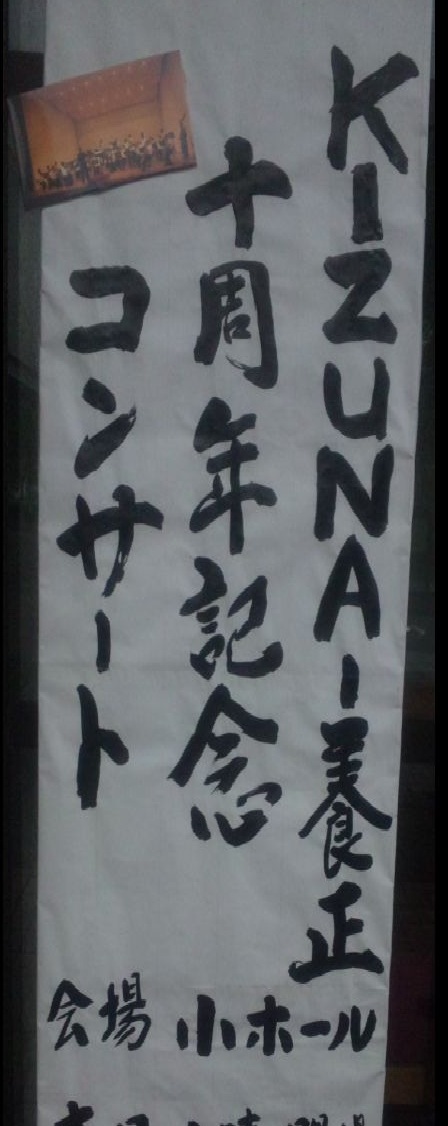 KIZUNAー養正
十周年記念
コンサート
会場 小ホール